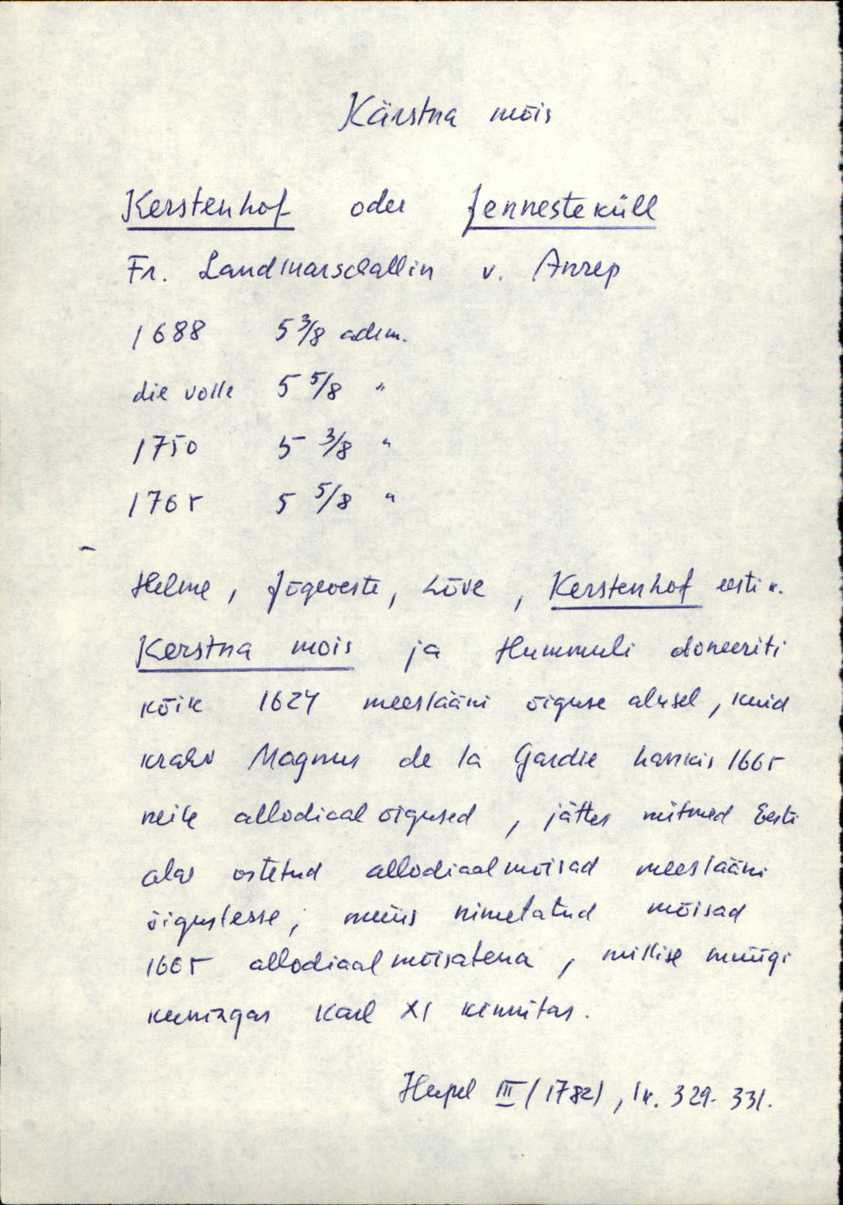 Kärstna mõis
Kerstenhof oder Jenneste küll
Fr. Landmarschallin v. Anrep
1688 5 3/8 adrm.
die volle 5 5/8 "
1750 5 3/8 "
1765 5 5/8 "
Helme, Jõgeveste, Lõve, Kerstenhof eesti k.
Kerstna mois ja Hummuli doneeriti
kõik 1624 meeslääni õiguse alusel, kuid
krahv Magnus de la Gardie hankis 1665
neile allodiaalõigused, jättes mitmed Eesti
alas ostetud allodiaalmõisad meeslääni
õigustesse, müüs nimetatud mõisad
1665 allodiaalmõisatena, millise müügi
kuningas Karl XI kinnitas.
Hupel III (1782), lk. 329-331.